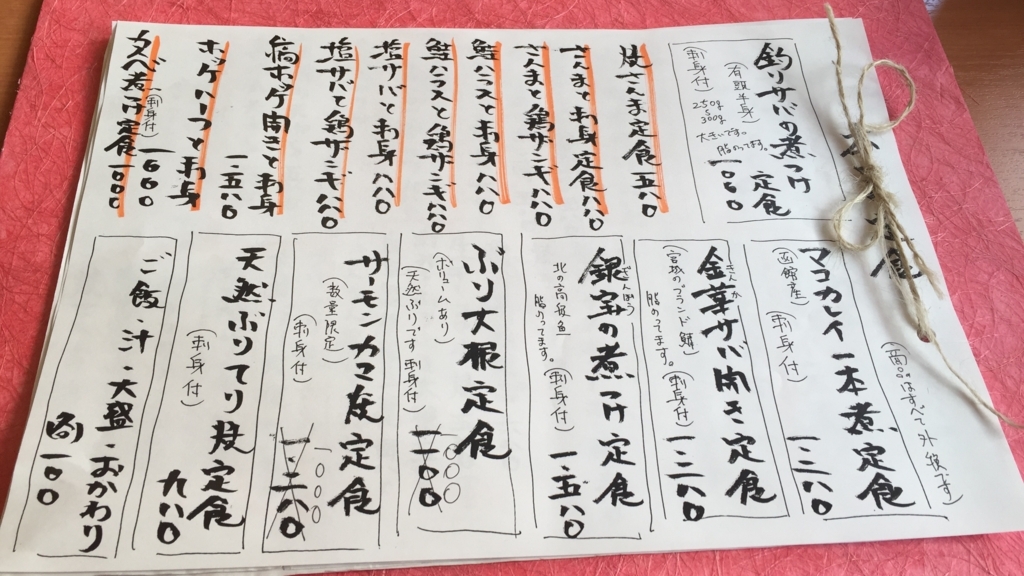 (商品はすべて外税です)
釣りサバの煮つけ定食
(有頭半身)
(刺身付)
250g
300g
大きいです。
脂のってます。
一〇八〇
灰さんま定食 五八〇
さんまとわ身定食 八八〇
さんまと鶏ザンギ 八八〇
鮭ハラスとわ身 八八〇
鮭ハラスと鶏ザンギ 八八〇
塩サバとわ身 八八〇
塩サバと鶏ザンギ 八八〇
縞ホッケ開きとわ身
一五八〇
ホッケハーフとわ身
一〇〇〇
(刺身付)
タベ煮付定食 一〇〇〇
マコカレイ一本煮定食
(函館産)
(刺身付)
一二八〇
金華サバ開き定食
きんか
(宮城のブランド鯖)
脂のってます。
(刺身付)
一二八〇
銀宝の煮つけ定食
ぎんぽう
北の高級魚
脂のってます。
(刺身付)
一五八〇
ぶり大根定食
(ボリュームあり)
(天然ぶりです 刺身付)
一一〇〇
一〇〇〇
サーモンカマ灰定食
(数量限定)
(刺身付)
一二八〇
一〇〇〇
天然ぶりてり灰定食
(刺身付)
九八〇
ご飯・汁・大盛・おかわり
各一〇〇